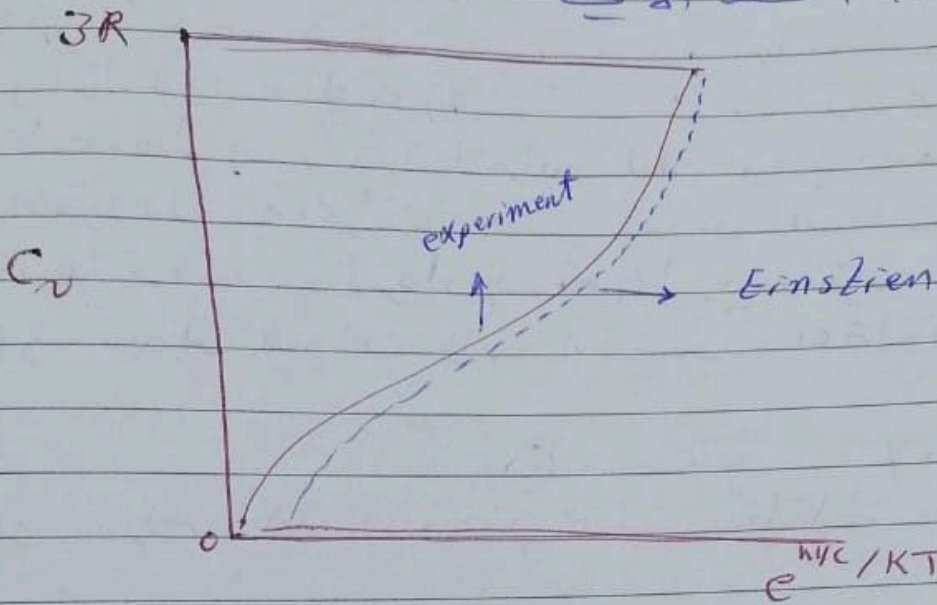 3R
experiment
C_v
Einstien
0
e^hνc / KT